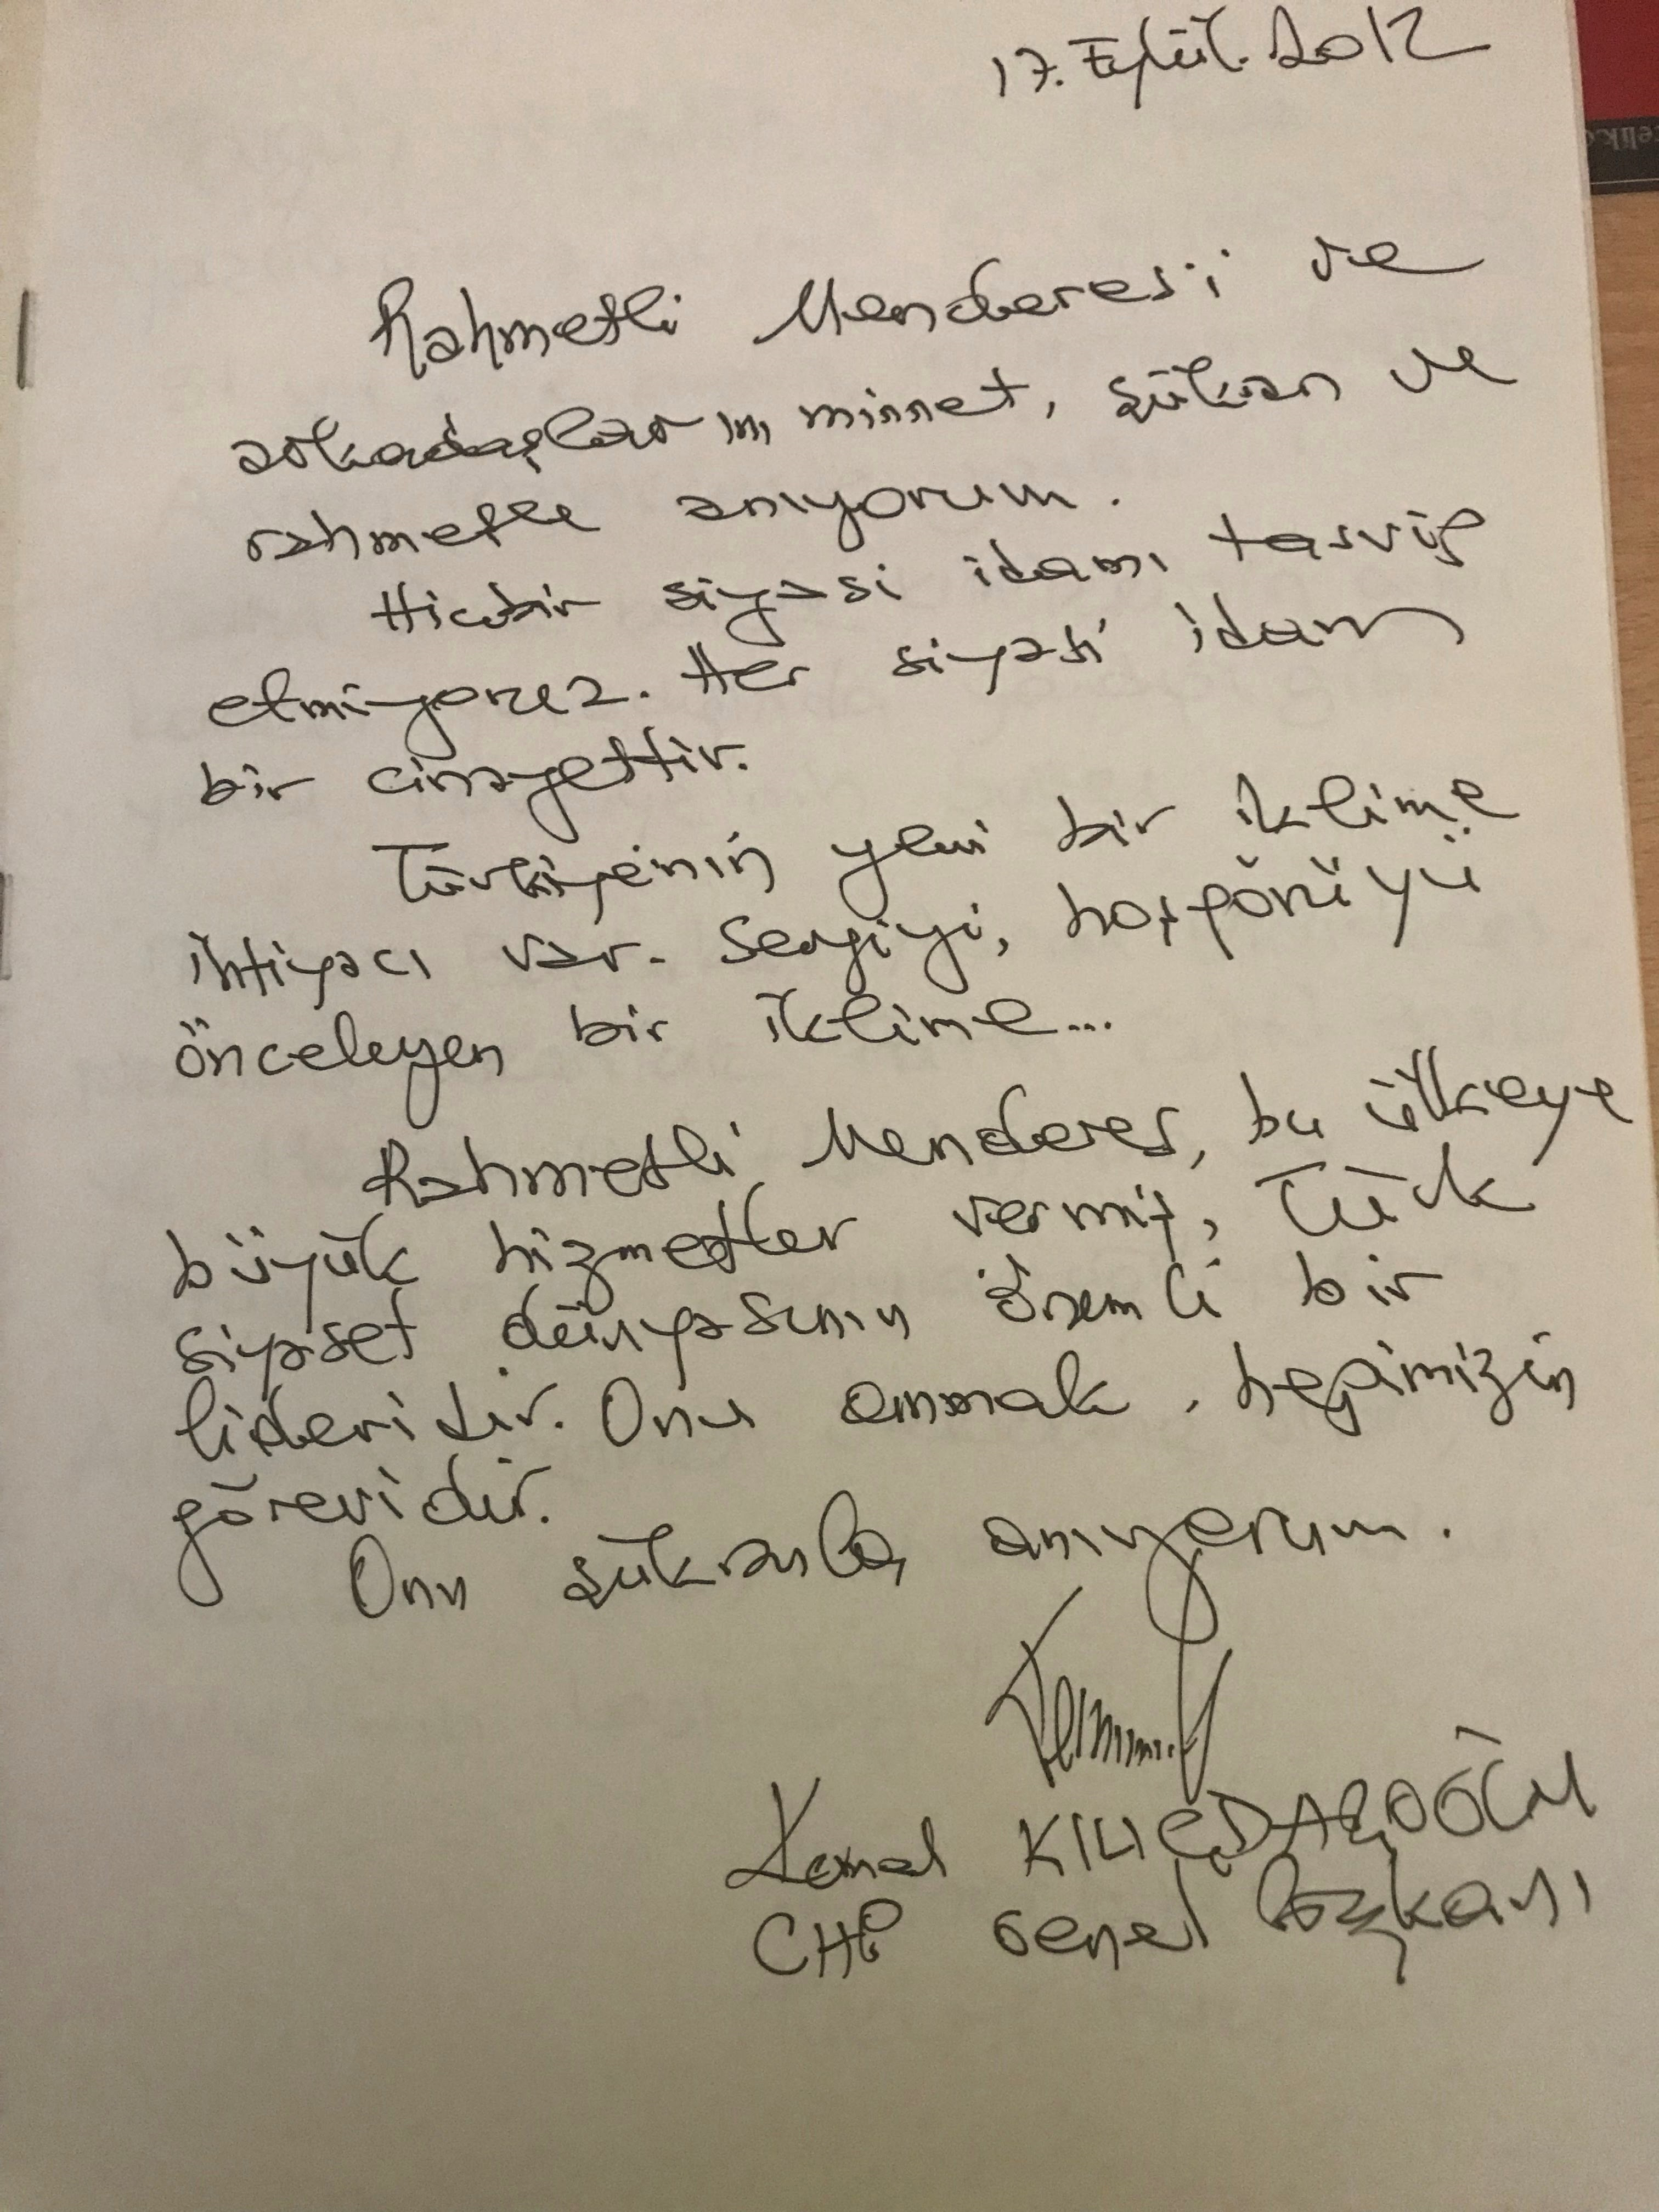 17. Eylül. 2012
Rahmetli Menderes'i ve
arkadaşlarını minnet, şükran ve
rahmetle anıyorum.
Hiçbir siyasi idamı tasvip
etmiyoruz. Her siyasi idam
bir cinayettir.
Türkiye'nin yeni bir iklime
ihtiyacı var. Sevgiyi, hoşgörüyü
önceleyen bir iklime...
Rahmetli Menderes, bu ülkeye
büyük hizmetler vermiş, Türk
siyaset dünyasının önemli bir
lideridir. Onu anmak, hepimizin
görevidir.
Onu şükranla anıyorum.
Kemal KILIÇDAROĞLU
CHP Genel Başkanı